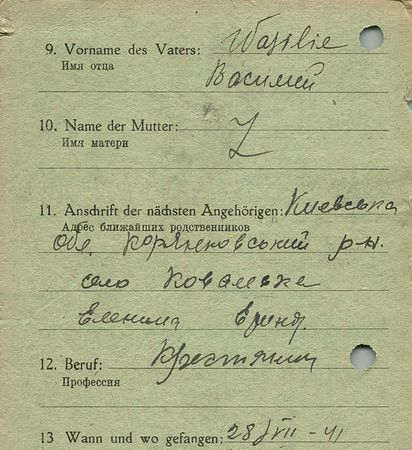 9. Vorname des Vaters: Wasilie
Имя отца
Василий
10. Name der Mutter:
Имя матери
11. Anschrift der nächsten Angehörigen: Киевська
Адрес ближайших родственников
обл. р-н.
село
12. Beruf: Крестянин
Профессия
13 Wann und wo gefangen: 28/VII - 41